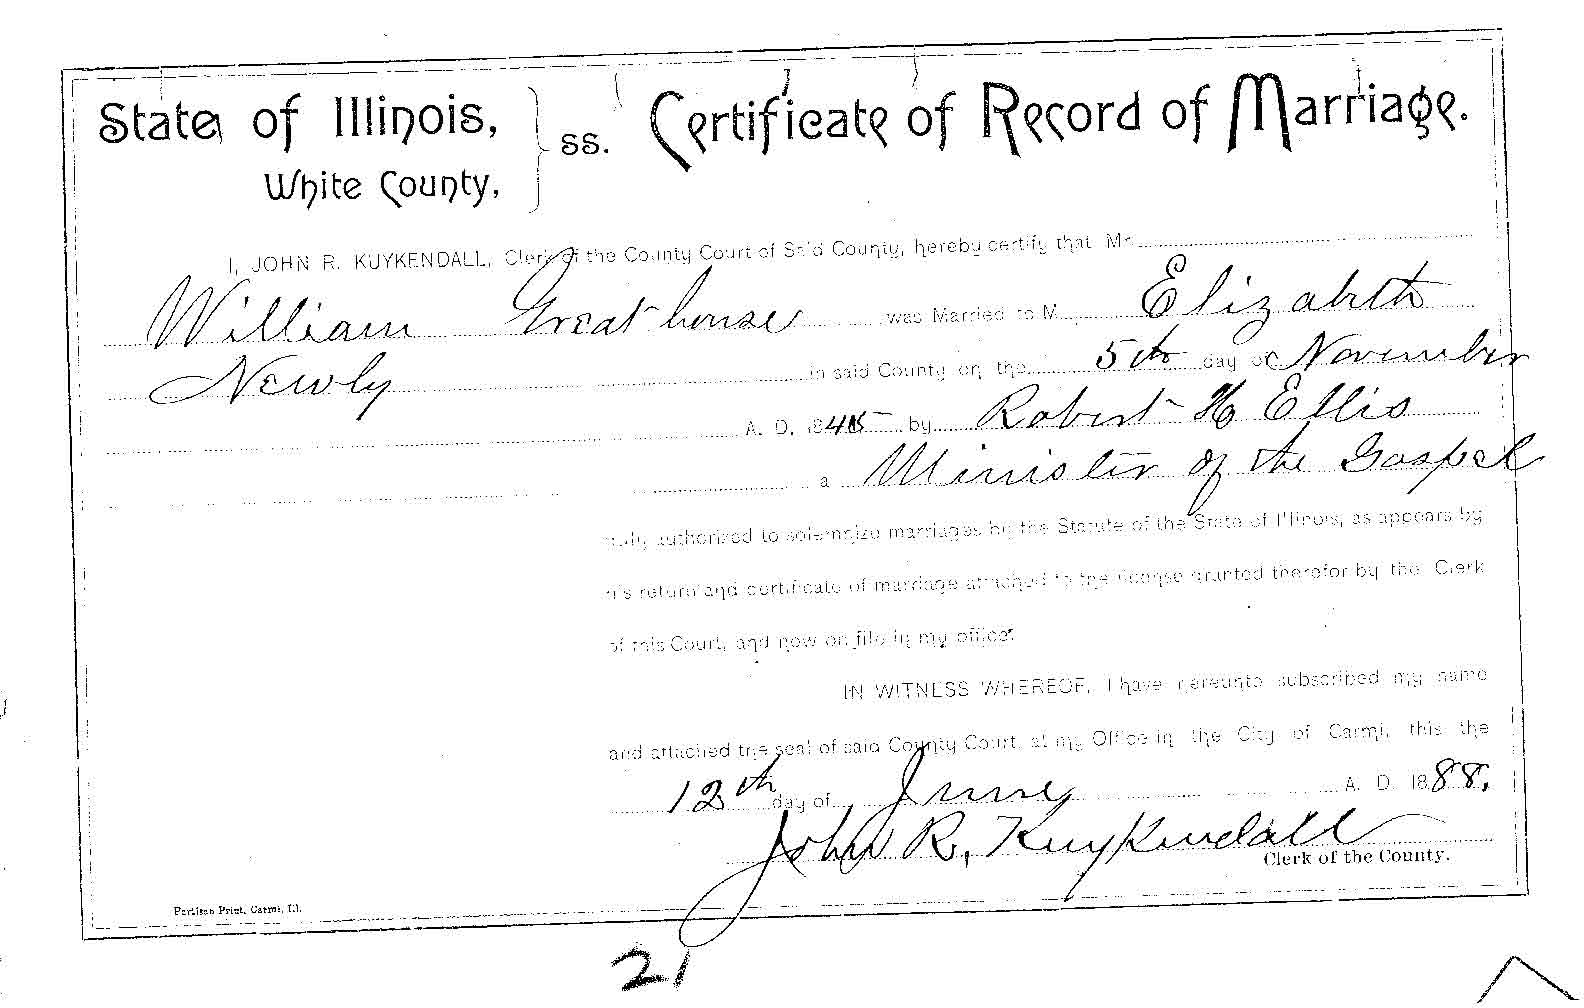 State of Illinois, } ss. Certificate of Record of Marriage.
White County,
I, JOHN R. KUYKENDALL, Clerk of the County Court of Said County, hereby certify that Mr
William Greathouse was Married to M Elizabeth
Newly in said County on the 5th day of November
A. D. 1845 by Robert H Ellis
a Minister of the Gospel
duly authorized to solemnize marriages by the Statute of the State of Illinois, as appears by
his return and certificate of marriage attached to the license granted therefor by the Clerk
of this Court, and now on file in my office.
IN WITNESS WHEREOF, I have hereunto subscribed my name
and attached the seal of said County Court, at my Office in the City of Carmi, this the
12th day of June A. D. 1888.
John R. Kuykendall
Clerk of the County.
Partisan Print, Carmi, Ill.
21